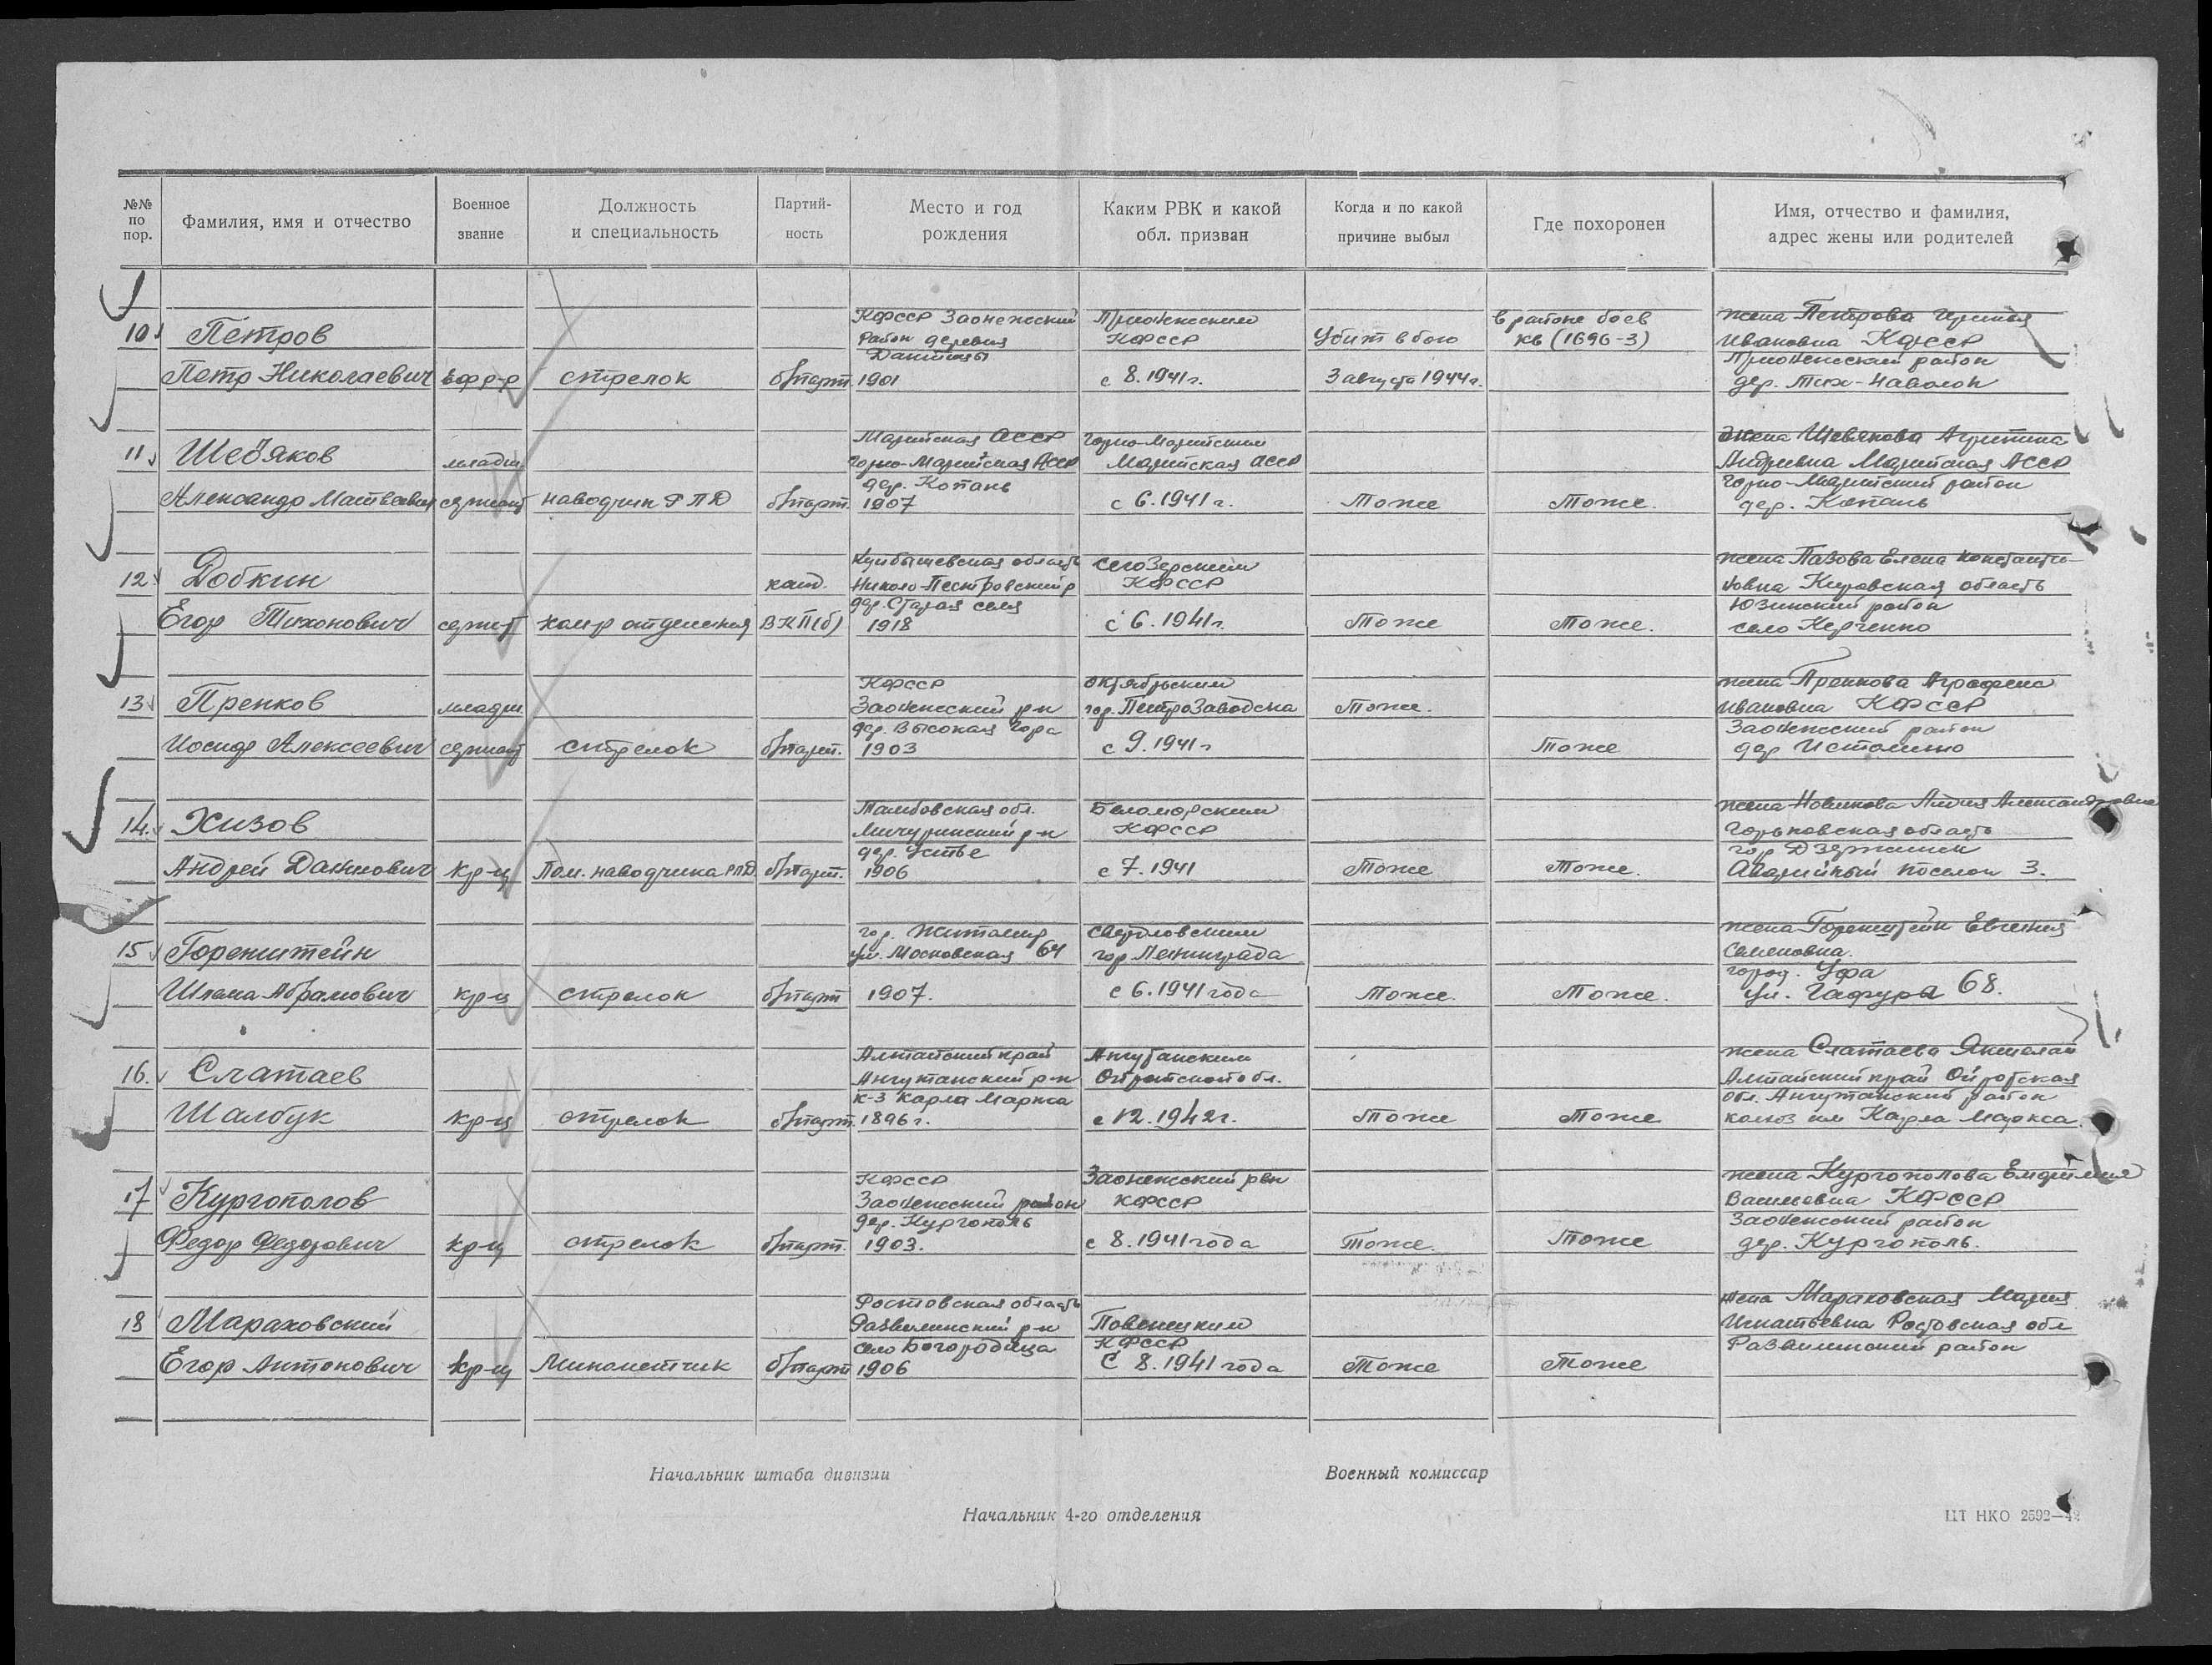 №№ по пор.
Фамилия, имя и отчество
Военное звание
Должность и специальность
Партий- ность
Место и год рождения
Каким РВК и какой обл. призван
Когда и по какой причине выбыл
Где похоронен
Имя, отчество и фамилия, адрес жены или родителей
10 Петров
Петр Николаевич
Ефр-р
стрелок
б/парт
КФССР Заонежский
район деревня
1901
Прионежским
КФССР
с 8.1941г.
Убит в бою
3 августа 1944г.
в районе боев
кв (1696-3)
жена Петрова
Ивановна КФССР
Прионежский район
дер.
11 Шевяков
Александр Матвеевич
младш.
сержант
наводчик РПД
б/парт.
Марийская АССР
Горно-Марийская АССР
дер. Копань
1907
Горно-Марийским
Марийская АССР
с 6.1941г.
Тоже
Тоже.
жена Шевякова
Андреевна Марийская АССР
Горно-Марийский район
дер. Копань
12 Добкин
Егор Тихонович
сержант
ком-р отделения
канд.
ВКП(б)
Куйбышевская область
Николо-Пестровский р
дер. Старая
1918
Сегозерским
КФССР
с 6.1941г.
Тоже
Тоже.
жена Пазова Елена Константи-
новна Кировская область
район
село Керченко
13 Пренков
Иосиф Алексеевич
младш.
сержант
стрелок
б/парт.
КФССР
Заонежский р-н
дер. Высокая Гора
1903
Октябрьским
гор. Петрозаводска
с 9.1941г
Тоже.
Тоже
жена Пренкова Аграфена
Ивановна КФССР
Заонежский район
дер Истомино
14. Хизов
Андрей Данилович
кр-ц
Пом. наводчика РПД
б/парт.
Тамбовская обл.
Мичуринский р-н
дер. Устье
1906
Беломорским
КФССР
с 7.1941
Тоже
Тоже.
жена Новикова Лидия Александровна
Горьковская область
гор Дзержинск
Аварийный поселок 3.
15 Горенштейн
Шлема Абрамович
кр-ц
стрелок
б/парт
гор. Житомир
ул. Московская 64
1907.
Свердловским
гор Ленинграда
с 6.1941 года
Тоже.
Тоже.
жена Горенштейн Евгения
Семеновна.
город. Уфа
ул. Гафура 68.
16. Слатаев
Шалбук
кр-ц
стрелок
б/парт.
Алтайский край
р-н
к-з Карла Маркса
1896г.
Ойротской обл.
с 12.1942г.
Тоже
Тоже
жена Слатаева
Алтайский край Ойротская
обл. район
колхоз им Карла Маркса.
17 Кургополов
Федор Федорович
кр-ц
стрелок
б/парт.
КФССР
Заонежский район
дер. Кургополь
1903.
Заонежский рвк
КФССР
с 8.1941 года
Тоже.
Тоже
жена Кургополова
КФССР
Заонежский район
дер. Кургополь.
18 Мараховский
Егор Антонович
кр-ц
Минометчик
б/парт
Ростовская область
Развиленский р-н
село Богородица
1906
Повенецким
КФССР
С 8.1941 года
Тоже
Тоже
жена Мараховская Мария
Игнатьевна Ростовская обл
Развиленский район
Начальник штаба дивизии
Военный комиссар
Начальник 4-го отделения
ЦТ НКО 2592—42